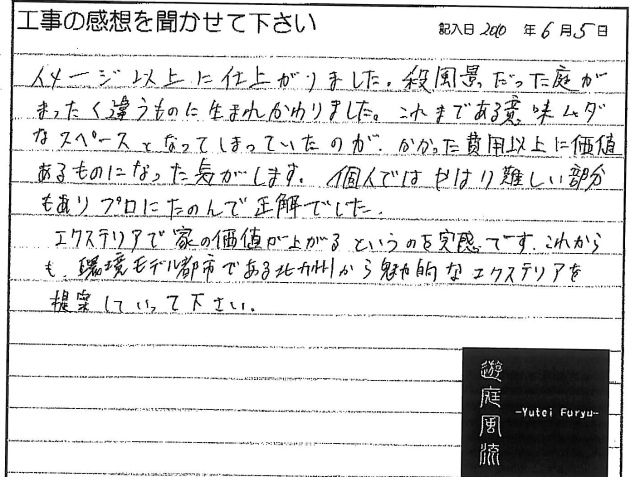 工事の感想を聞かせて下さい
記入日 2010 年 6 月 5 日
イメージ以上に仕上がりました。殺風景だった庭が
まったく違うものに生まれかわりました。これまである意味ムダ
なスペースとなってしまっていたのが、かかった費用以上に価値
あるものになった気がします。個人ではやはり難しい部分
もあり プロにたのんで正解でした。
エクステリアで家の価値が上がる というのを実感です。これから
も、環境モデル都市である北九州から魅力的なエクステリアを
提案していって下さい。
遊庭風流
-Yutei Furyu-